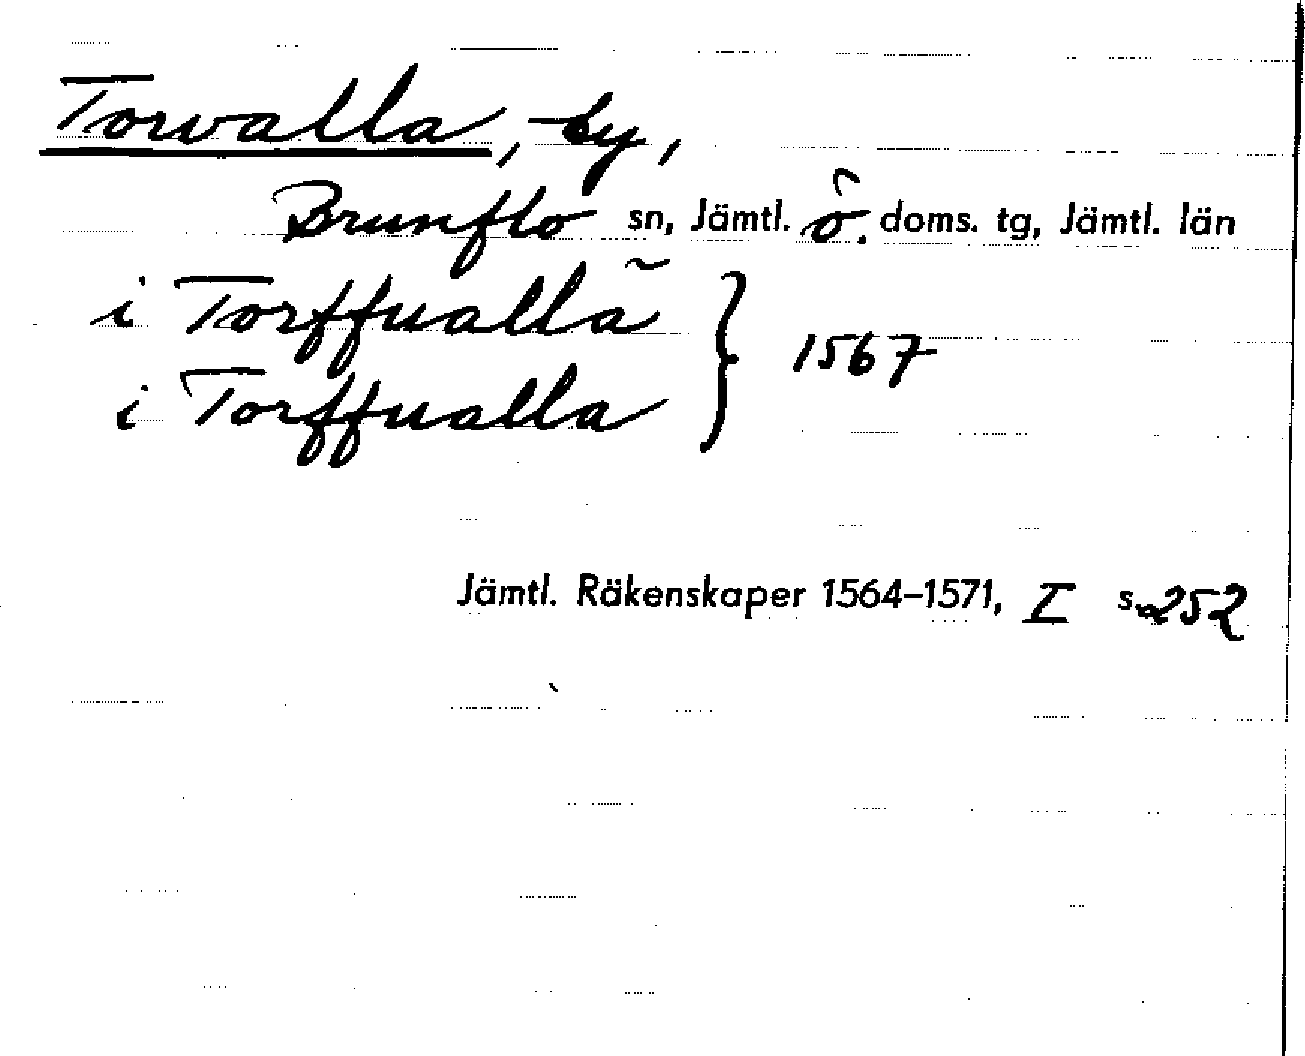 Torvalla, by,
Brunflo sn, Jämtl. ö. doms. tg, Jämtl. län
i Torffuallã } 1567
i Torffualla
Jämtl. Räkenskaper 1564–1571, I s. 252